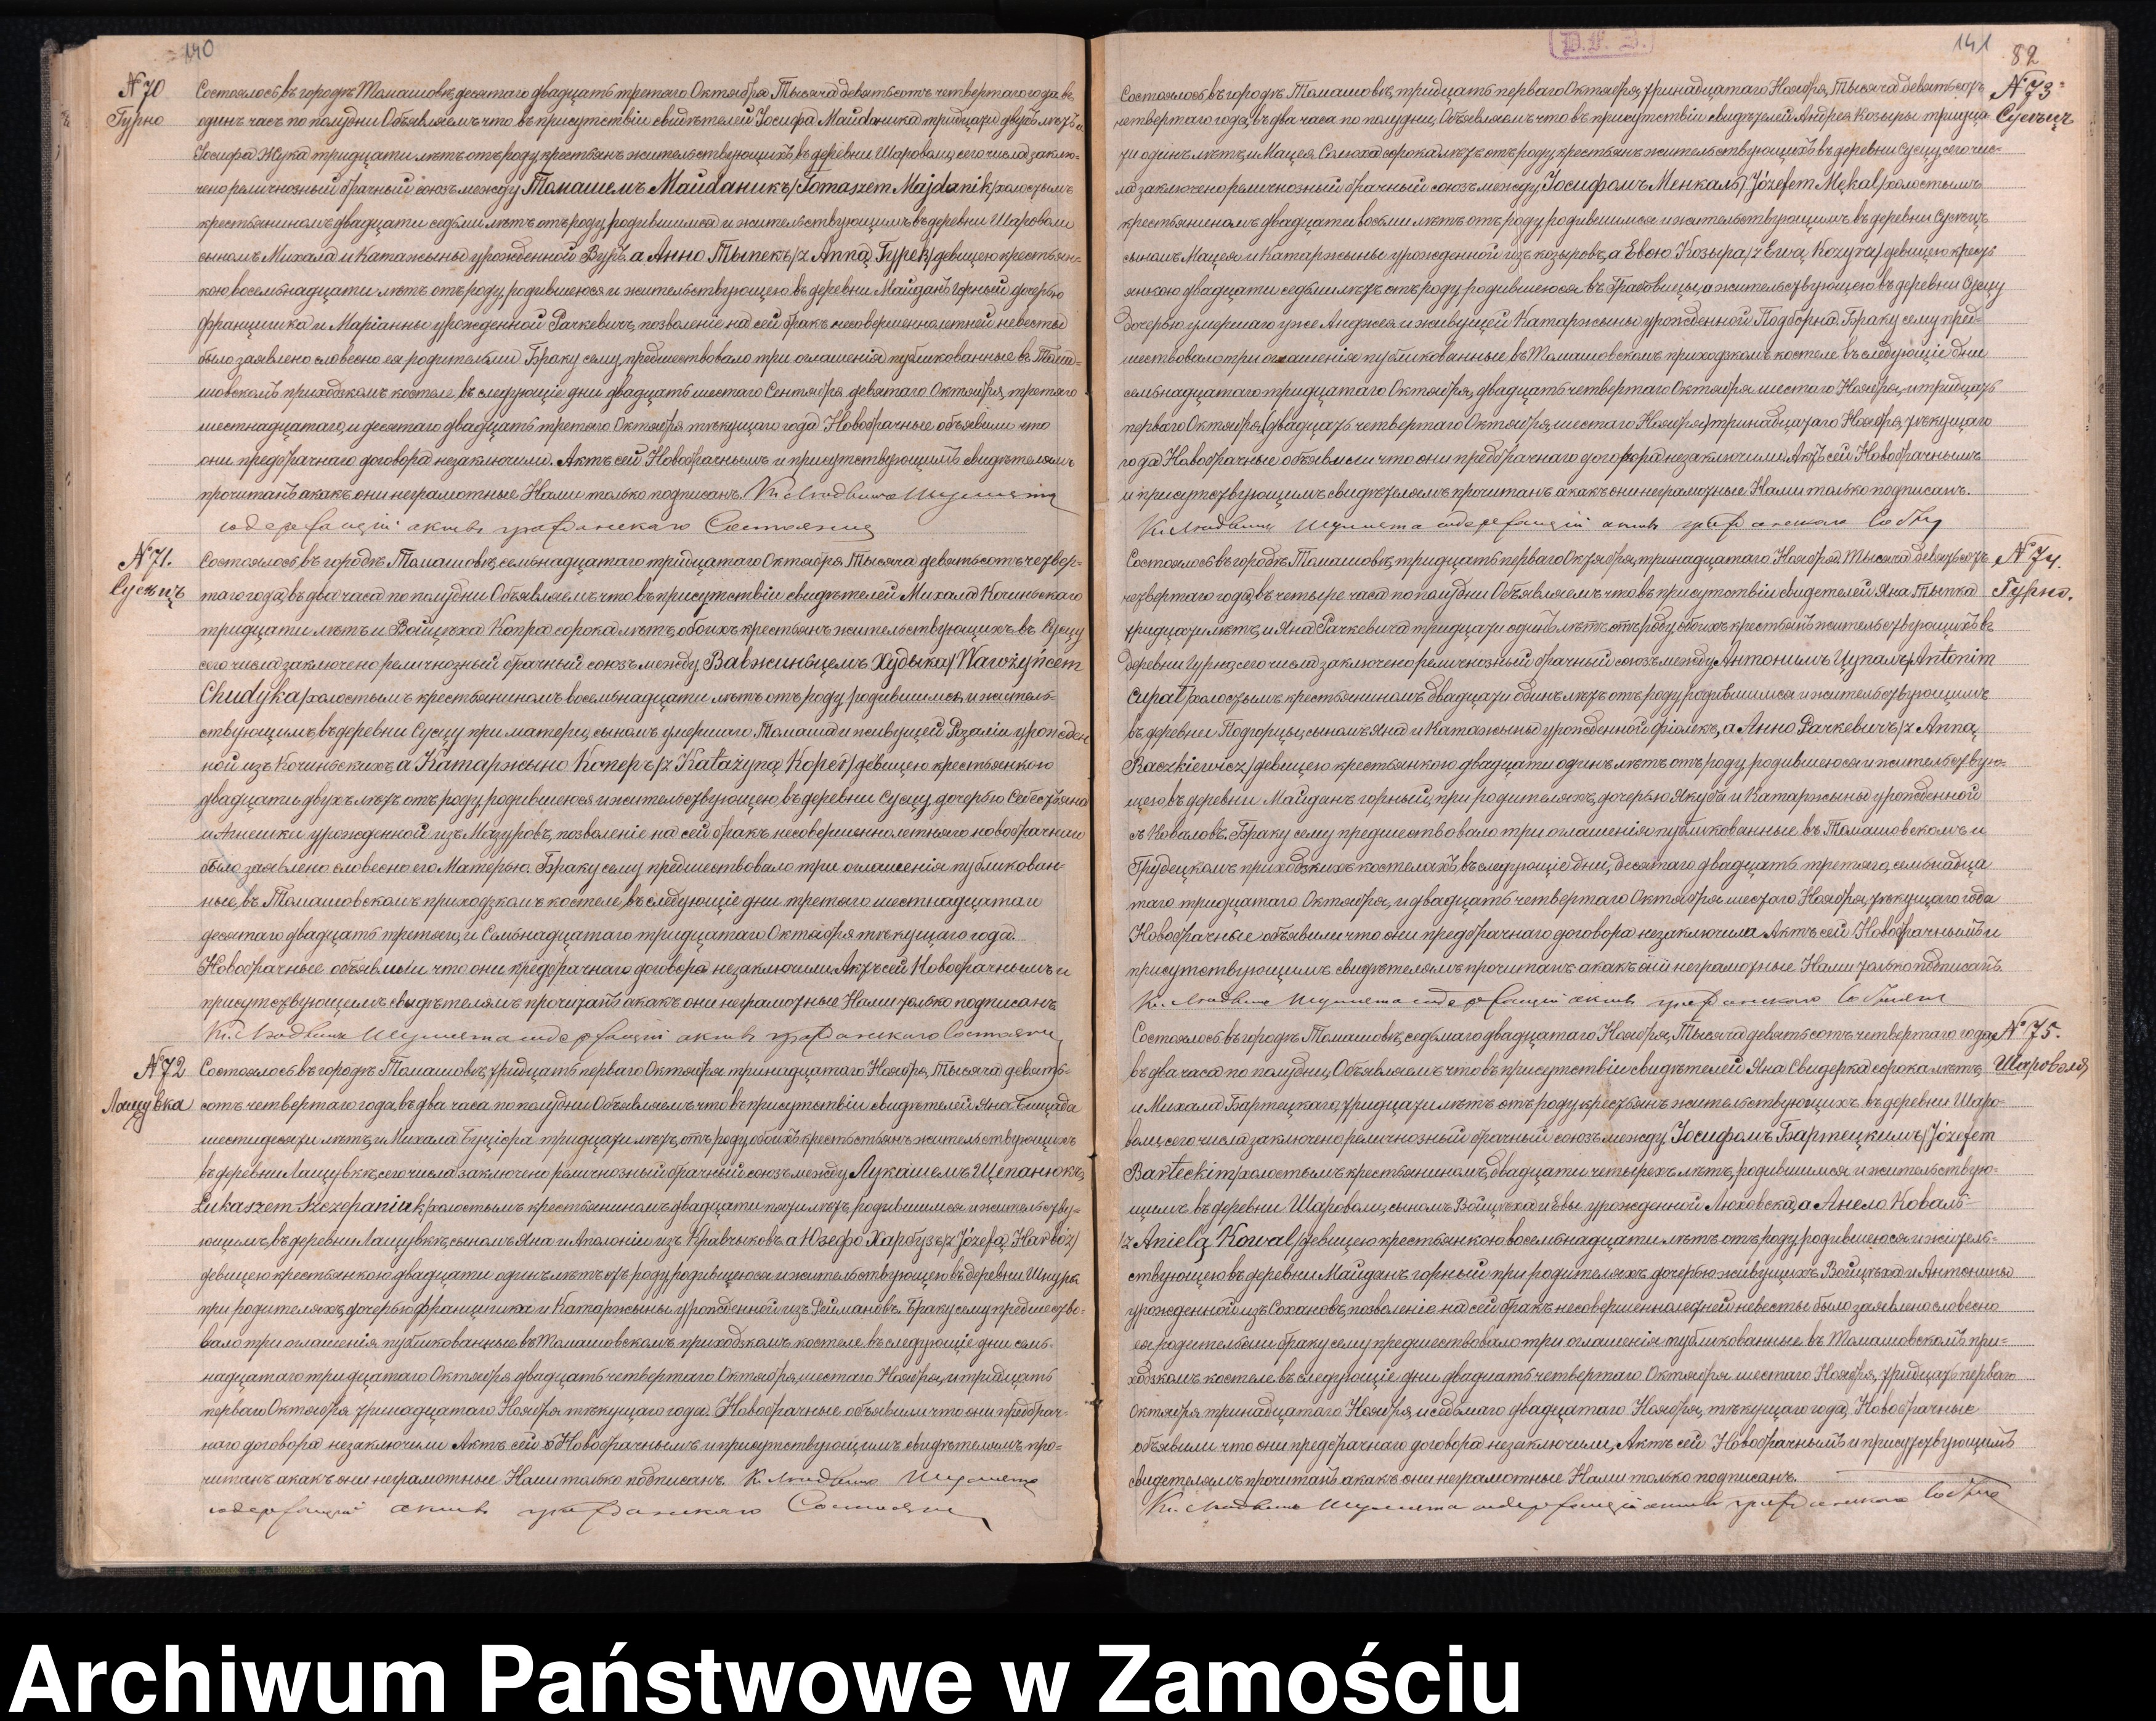 140
№ 70
Гурно
Состоялось въ городѣ Томашовѣ, десятаго двадцать третяго Октября Тысяча девятьсотъ четвертаго года въ
одинъ часъ по полудни Объявляемъ что въ присутствіи свидѣтелей Іосифа Майданика тридцати двухъ лѣтъ и
Іосифа Жука тридцати лѣтъ отъ роду крестьянъ жительствующихъ въ деревни Шароволи, сего числа заклю-
чено религіозный брачный союзъ между Томашемъ Майданикъ /Tomaszem Majdanik/ холостымъ
крестьяниномъ двадцати седьми лѣтъ отъ роду, родившимся и жительствующимъ въ деревни Шароволи
сыномъ Михала и Катажыны урожденной Вуръ, а Анно Тыпекъ /z Anną Typek/ девицею крестьян-
кою восемьнадцати лѣтъ отъ роду, родившеюся и жительствующею въ деревни Майданъ горный дочерью
Францишка и Маріанны урожденной Рачкевичъ, позволеніе на сей бракъ несовершеннолетней невесты
было заявлено словесно ея родительми Браку сему предшествовало три оглашенія публикованные въ Тома-
шовскомъ приходскомъ костеле, въ следующіе дни двадцать шестаго Сентября девятаго Октября, третяго
шестнадцатаго, и десятаго двадцать третяго Октября тѣкущаго года Новобрачные объявили что
они предбрачнаго договора незаключили. Актъ сей Новобрачнымъ и присутствующимъ свидѣтелямъ
прочитанъ а какъ они неграмотные Нами только подписанъ.
№ 71.
Сусѣцъ
Состоялось въ городѣ Томашовѣ, семьнадцатаго тридцатаго Октября Тысяча девятьсотъ четвер-
таго года, въ два часа по полудни Объявляемъ что въ присутствіи свидѣтелей Михала Кочиньскаго
тридцати лѣтъ и Войцѣха Копра сорока лѣтъ, обоихъ крестьянъ жительствующихъ въ Сусцу
сего числа заключено религіозный брачный союзъ между Вавжиньцемъ Худыка /Wawżyńcem
Chudyka/ холостымъ крестьяниномъ восемьнадцати лѣтъ отъ роду, родившимся, и житель-
ствующимъ въ деревни Сусцу при матери, сыномъ умершаго Томаша и живущей Розаліи урожден
ной изъ Кочиньскихъ а Катаржыно Коперъ /z Katażyną Koper/ девицею крестьянкою
двадцати двухъ лѣтъ отъ роду, родившеюся и жительствующею, въ деревни Сусцу, дочерью Себестьяна
и Агнешки урожденной изъ Мазуровъ, позволеніе на сей бракъ несовершеннолетняго новобрачнаго
было заявлено словесно его Матерью. Браку сему предшествовало три оглашенія публикован-
ные, въ Томашовскомъ приходскомъ костеле, въ следующіе дни третяго шестнадцатаго
десятаго двадцать третяго, и Семьнадцатаго тридцатаго Октября тѣкущаго года.
Новобрачные объявили что они предбрачнаго договора незаключили Актъ сей Новобрачнымъ и
присутствующимъ свидѣтелямъ прочитанъ а какъ они неграмотные Нами только подписанъ
№ 72
Лащувка
Состоялось въ городѣ Томашовѣ, тридцать перваго Октября тринадцатаго Ноября, Тысяча девять-
сотъ четвертаго года, въ два часа по полудни Объявляемъ что въ присутствіи свидѣтелей Яна
шестидесяти лѣтъ, и Михала Буціора тридцати лѣтъ, отъ роду обоихъ крестьянъ жительствующихъ
въ деревни Лащувкѣ, сего числа заключено религіозный брачный союзъ между Лукашемъ Щепанюкъ,
Łukaszem Szczepaniak/ холостымъ крестьяниномъ двадцати пяти лѣтъ, родившимся и жительству-
ющимъ, въ деревни Лащувкѣ, сыномъ Яна и Аполоніи изъ Кравчыковъ а Юзефо Харбузъ /z Józefą Harbóz/
девицею крестьянкою двадцати одинъ лѣтъ отъ роду, родившеюся и жительствующею въ деревни Шнурк
при родителяхъ, дочерью Францишка и Катаржыны урожденной изъ Реймановъ. Браку сему предшество-
вало три оглашенія публикованные въ Томашовскомъ приходскомъ костеле, въ следующіе дни семь-
надцатаго тридцатаго Октября двадцать четвертаго Октября, шестаго Ноября, и тридцать
перваго Октября тринадцатаго Ноября тѣкущаго года. Новобрачные объявили что они предбрач-
наго договора незаключили Актъ сей Новобрачнымъ и присутствующимъ свидѣтелямъ про-
читанъ а какъ они неграмотные Нами только подписанъ.
141
82
№ 73
Сусѣцъ
Состоялось въ городѣ Томашовѣ, тридцать перваго Октября, тринадцатаго Ноября, Тысяча девятьсотъ
четвертаго года, въ два часа по полудни, Объявляемъ что въ присутствіи свидѣтелей Андрея Козыры тридца
ти одинъ лѣтъ, и Мацея Солюха сорока лѣтъ отъ роду, крестьянъ жительствующихъ въ деревни Сусцу, сего чис-
ла заключено религіозный брачный союзъ между Іосифомъ Менкаль /Józefem Mękal/ холостымъ
крестьяниномъ двадцати восьми лѣтъ отъ роду родившимся и жительствующимъ въ деревни Сусѣцъ
сыномъ Мацея и Катаржыны урожденной изъ козыровъ, а Евою Козыра /z Ewą Kozyra/ девицею кресть
янкою двадцати седьми лѣтъ отъ роду родившеюся въ Грабовицы, а жительствующею въ деревни Сусцу
Дочерью умершаго уже Анджея и живущей Катаржыны урожденной Подборна Браку сему пред-
шествовало три оглашенія публикованные, въ Томашовскомъ приходскомъ костеле въ следующіе дни
семьнадцатаго тридцатаго Октября, двадцать четвертаго Октября шестаго Ноября, и тридцать
перваго Октября, (двадцать четвертаго Октября, шестаго Ноября) тринадцатаго Ноября, тѣкущаго
года Новобрачные объявили что они предбрачнаго договора незаключили Актъ сей Новобрачнымъ
и присутствующимъ свидѣтелямъ прочитанъ а какъ они неграмотные Нами только подписанъ.
№ 74.
Гурно.
Состоялось въ городѣ Томашовѣ, тридцать перваго Октября, тринадцатаго Ноября Тысяча девятьсотъ
четвертаго года, въ четыре часа по полудни Объявляемъ что въ присутствіи свидетелей Яна Тыпка
тридцати лѣтъ, и Яна Рачкевича тридцати одинъ лѣтъ отъ роду обоихъ крестьянъ жительствующихъ въ
деревни Гурно, сего числа заключено религіозный брачный союзъ между Антонимъ Цупалъ /Antonim
Cupał/ холостымъ крестьяниномъ двадцати одинъ лѣтъ отъ роду, родившимся и жительствующимъ
въ деревни Подгорцы, сыномъ Яна и Катажыны урожденной Фіолекъ, а Анно Рачкевичъ /z Anną
Raczkiewicz/ девицею крестьянкою двадцати одинъ лѣтъ отъ роду, родившеюся и жительствую-
щею въ деревни Майданъ горный, при родителяхъ, дочерью Якуба и Катаржыны урожденной
съ Коваловъ. Браку сему предшествовало три оглашенія публикованные въ Томашовскомъ и
Грудецкомъ приходскихъ костелахъ, въ следующіе дни, десятаго двадцать третяго, семьнадца
таго тридцатаго Октября, и двадцать четвертаго Октября шестаго Ноября, тѣкущаго года
Новобрачные объявили что они предбрачнаго договора незаключила Актъ сей Новобрачнымъ и
присутствующимъ свидѣтелямъ прочитанъ а какъ они неграмотные Нами только подписанъ.
№ 75.
Шароволя
Состоялось въ городѣ Томашовѣ, седьмаго двадцатаго Ноября, Тысяча девятьсотъ четвертаго года
въ два часа по полудни, Объявляемъ что въ присутствіи свидѣтелей Яна Свидерка сорока лѣтъ,
и Михала Бартецкаго, тридцати лѣтъ отъ роду крестьянъ жительствующихъ въ деревни Шаро-
воли, сего числа заключено религіозный брачный союзъ между Іосифомъ Бартецкимъ /Józefem
Barteckim/ холостымъ крестьяниномъ, двадцати четырехъ лѣтъ, родившимся и жительствую-
щимъ въ деревни Шароволи, сыномъ Войцѣха и Евы урожденной Люховска, а Анело Коваль
/z Anielą Kowal/ девицею крестьянкою восемьнадцати лѣтъ отъ роду родившеюся и житель-
ствующею въ деревни Майданъ горный при родителяхъ дочерью живущихъ Войцѣха и Антонины
урожденной изъ Сохановъ, позволеніе на сей бракъ несовершеннолетней невесты было заявлено словесно
ея родительми браку сему предшествовало три оглашенія публикованные въ Томашовскомъ при-
ходскомъ костеле въ следующіе дни двадцать четвертаго Октября шестаго Ноября, тридцать перваго
Октября тринадцатаго Ноября, и седьмаго двадцатаго Ноября, тѣкущаго года, Новобрачные
объявили что они предбрачнаго договора незаключили, Актъ сей Новобрачнымъ и присутствующимъ
свидетелямъ прочитанъ а какъ они неграмотные Нами только подписанъ.
Archiwum Państwowe w Zamościu